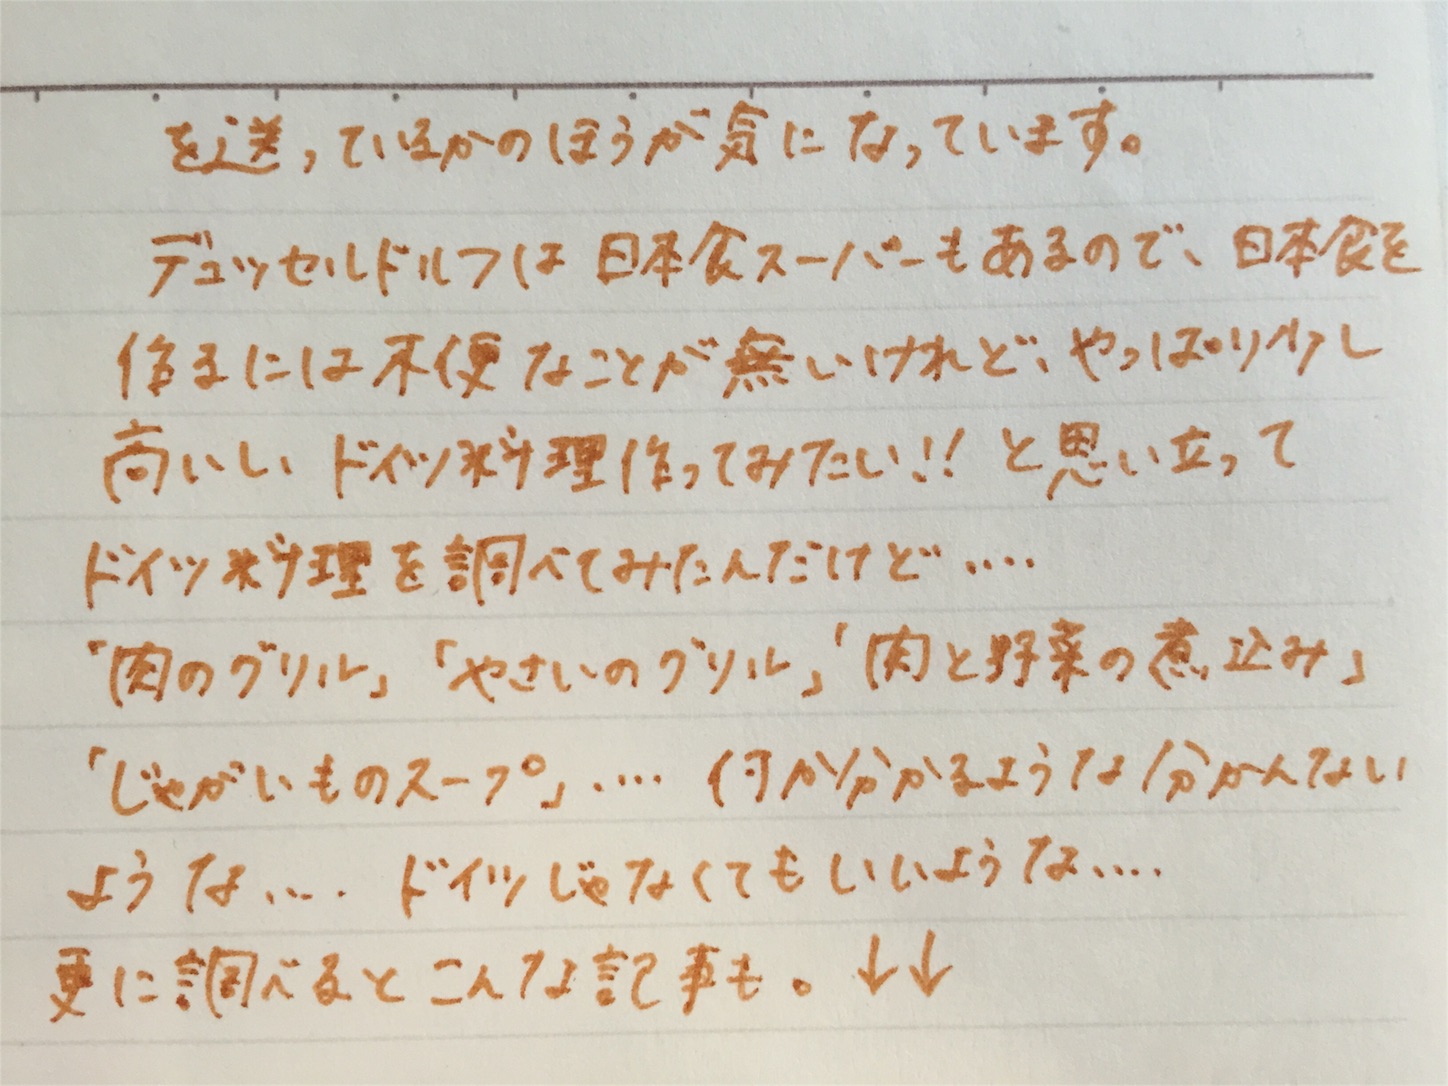 を送っているかのほうが気になっています。
デュッセルドルフは日本食スーパーもあるので、日本食を
作るには不便なことが無いけれど、やっぱり少し
高いしい ドイツ料理作ってみたい!! と思い立って
ドイツ料理を調べてみたんだけど....
「肉のグリル」「やさいのグリル」「肉と野菜の煮込み」
「じゃがいものスープ」.... 何か分かるような分かんない
ような.... ドイツじゃなくてもいいような....
更に調べるとこんな記事も。↓↓